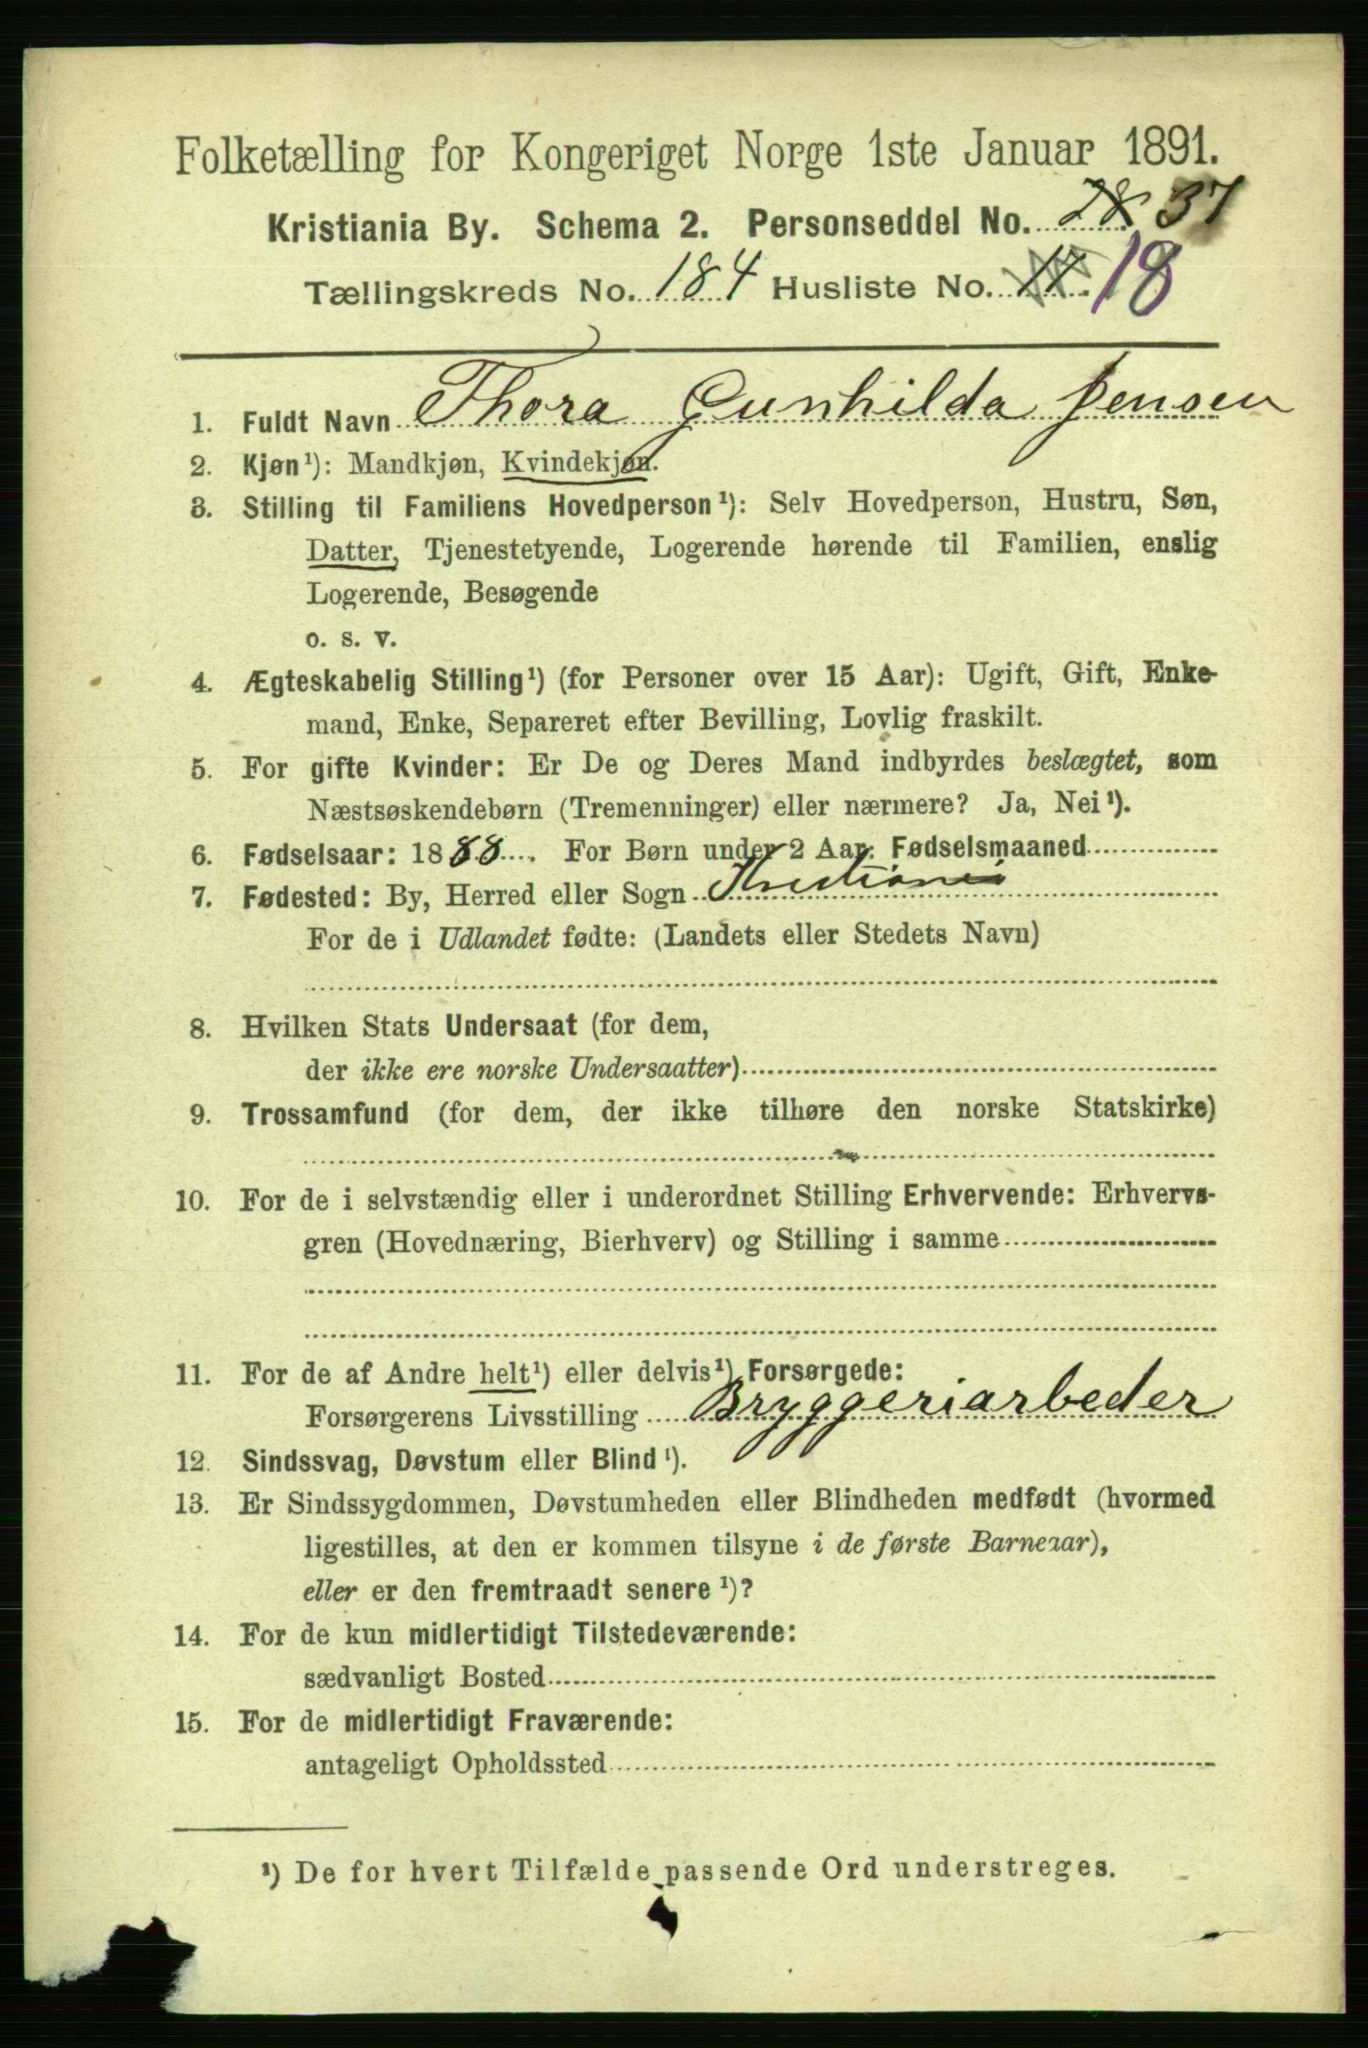 Folketælling for Kongeriget Norge 1ste Januar 1891.
Kristiania By. Schema 2. Personseddel No. 28 37
Tællingskreds No. 184 Husliste No. 18
1. Fuldt Navn Thora Gunhilda Jensen
2. Kjøn¹): Mandkjøn, Kvindekjøn.
3. Stilling til Familiens Hovedperson¹): Selv Hovedperson, Hustru, Søn,
Datter, Tjenestetyende, Logerende hørende til Familien, enslig
Logerende, Besøgende
o. s. v.
4. Ægteskabelig Stilling¹) (for Personer over 15 Aar): Ugift, Gift, Enke-
mand, Enke, Separeret efter Bevilling, Lovlig fraskilt.
5. For gifte Kvinder: Er De og Deres Mand indbyrdes beslægtet, som
Næstsøskendebørn (Tremenninger) eller nærmere? Ja, Nei¹).
6. Fødselsaar: 1888. For Børn under 2 Aar: Fødselsmaaned
7. Fødested: By, Herred eller Sogn Kristiania
For de i Udlandet fødte: (Landets eller Stedets Navn)
8. Hvilken Stats Undersaat (for dem,
der ikke ere norske Undersaatter)
9. Trossamfund (for dem, der ikke tilhøre den norske Statskirke)
10. For de i selvstændig eller i underordnet Stilling Erhvervende: Erhvervs-
gren (Hovednæring, Bierhverv) og Stilling i samme
11. For de af Andre helt¹) eller delvis¹) Forsørgede:
Forsørgerens Livsstilling Bryggeriarbeder
12. Sindssvag, Døvstum eller Blind¹).
13. Er Sindssygdommen, Døvstumheden eller Blindheden medfødt (hvormed
ligestilles, at den er kommen tilsyne i de første Barneaar),
eller er den fremtraadt senere¹)?
14. For de kun midlertidigt Tilstedeværende:
sædvanligt Bosted
15. For de midlertidigt Fraværende:
antageligt Opholdssted
¹) De for hvert Tilfælde passende Ord understreges.